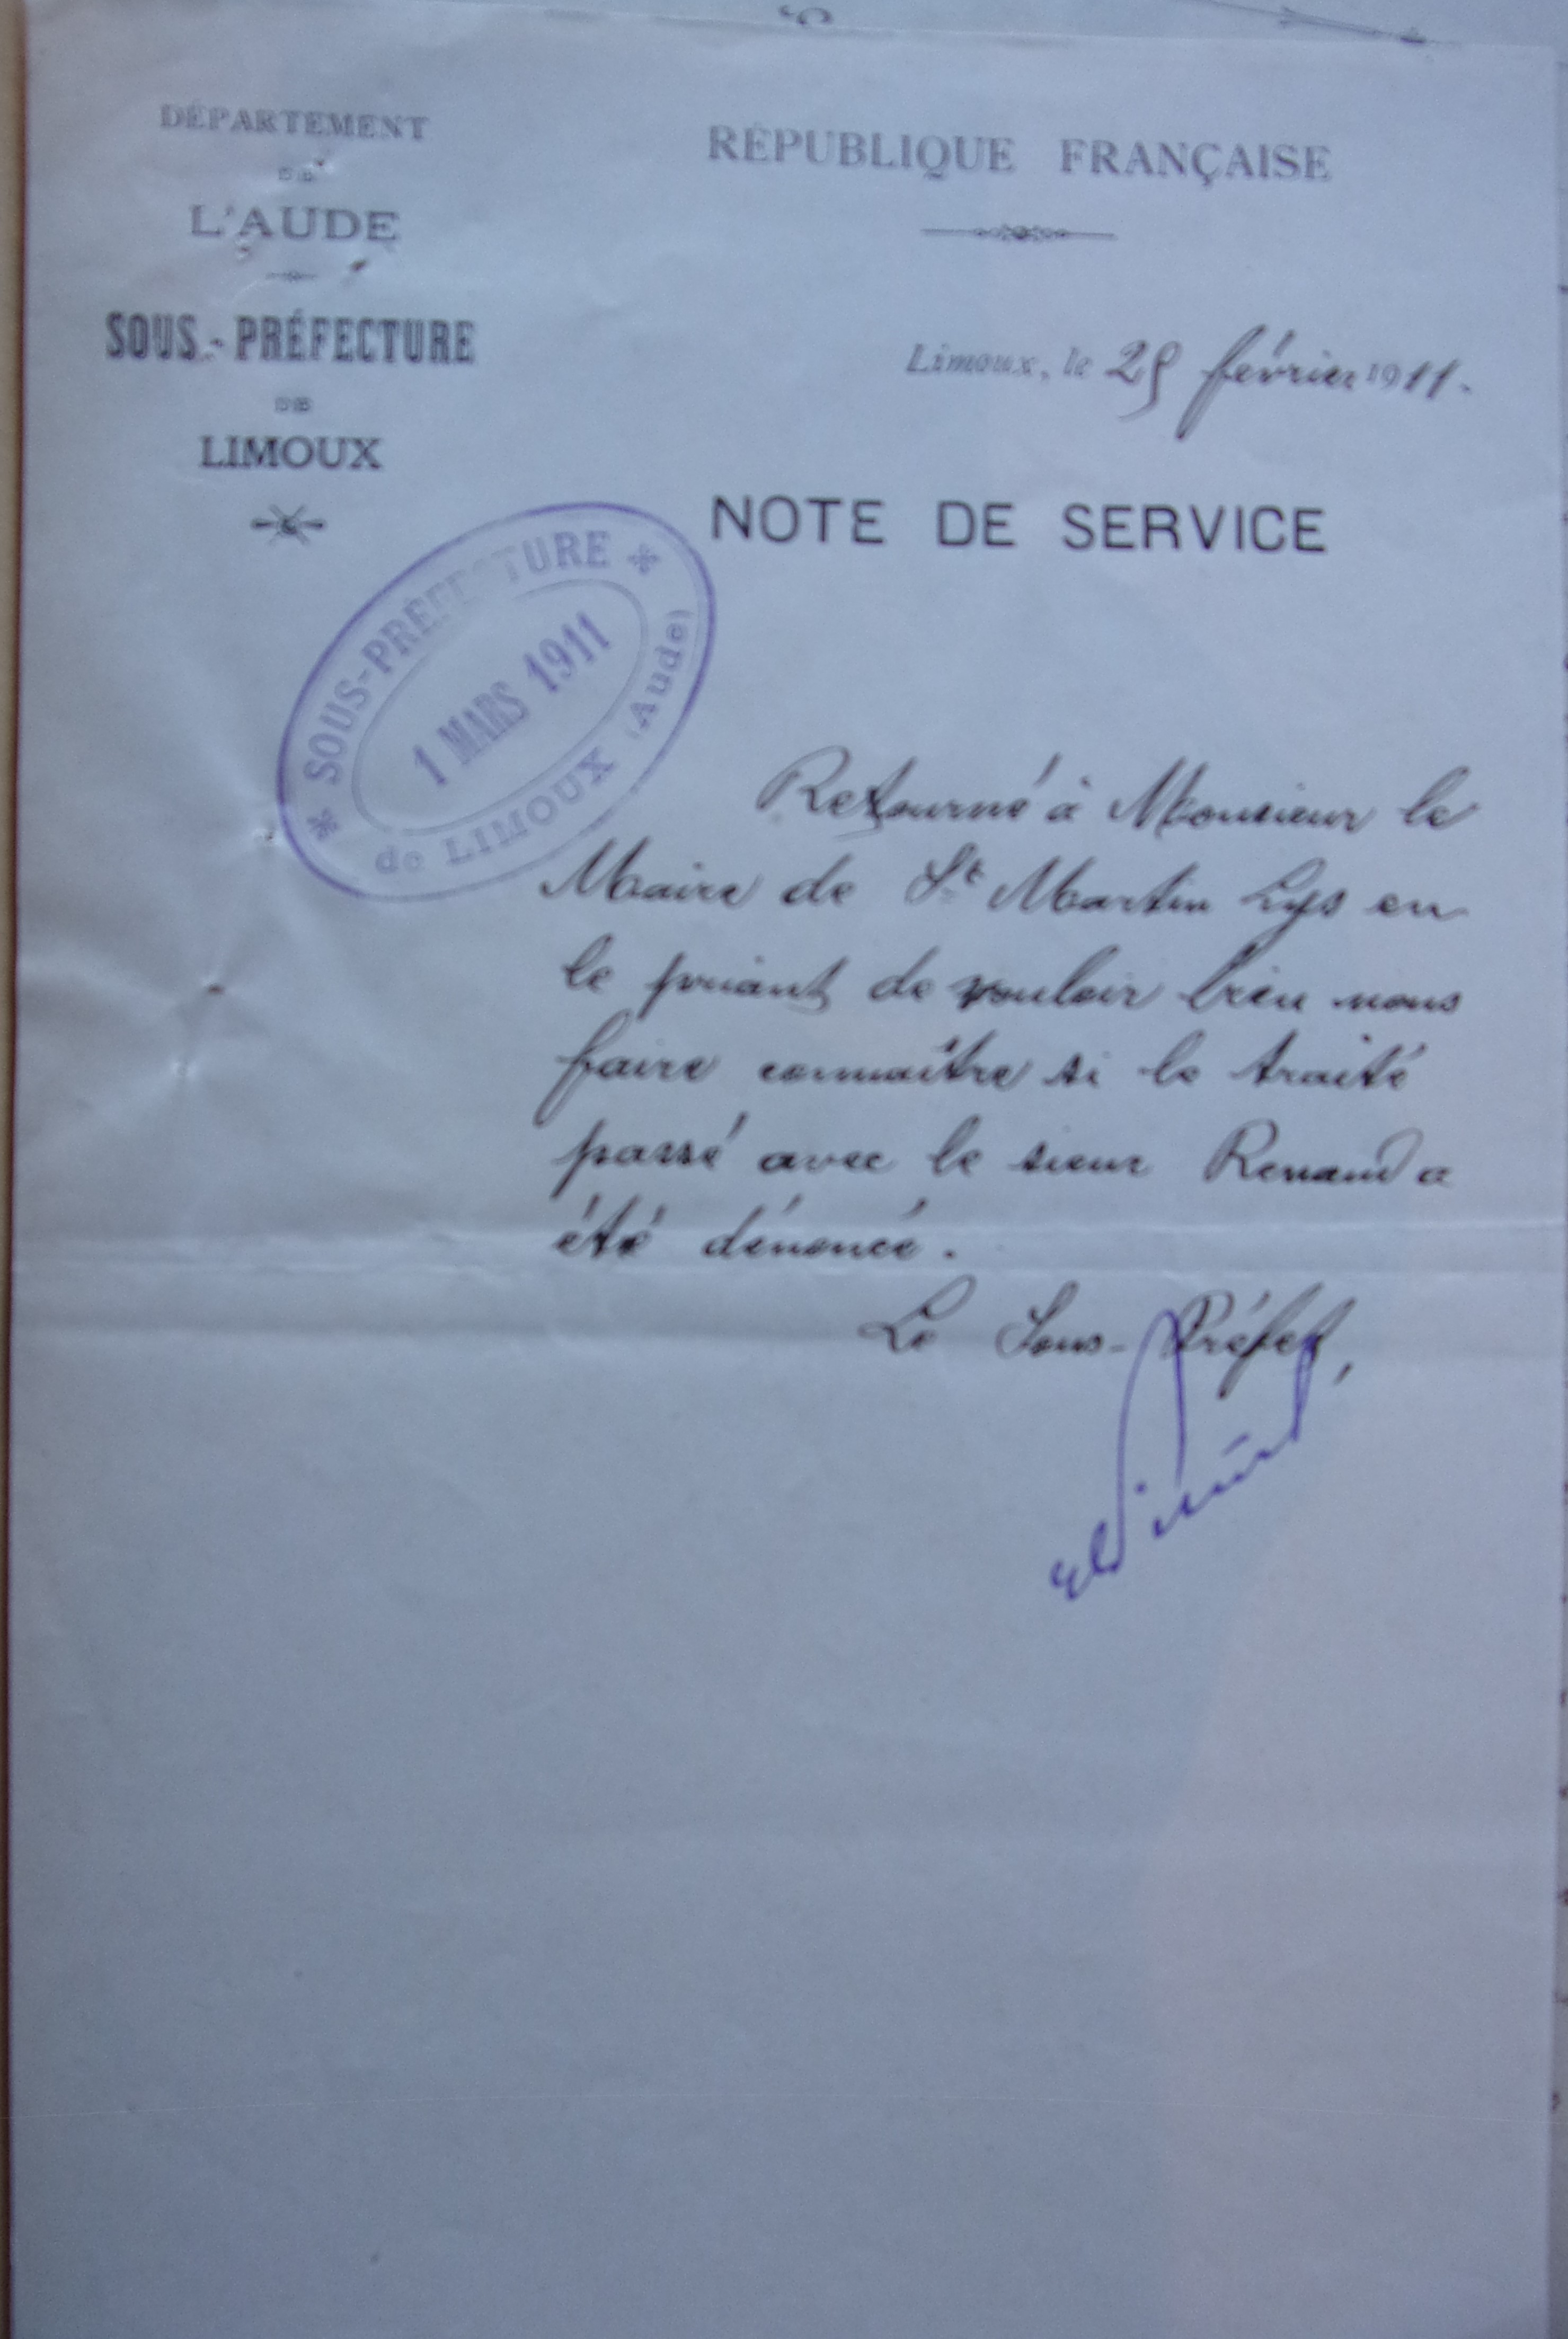 DÉPARTEMENT
DE
L'AUDE
SOUS-PRÉFECTURE
DE
LIMOUX
RÉPUBLIQUE FRANÇAISE
Limoux, le 25 février 1911.
NOTE DE SERVICE
* SOUS-PRÉFECTURE *
1 MARS 1911
de LIMOUX (Aude)
Retourné à Monsieur le
Maire de St Martin Lys en
le priant de vouloir bien nous
faire connaître si le traité
passé avec le sieur Renaud a
été dénoncé.
Le Sous-Préfet,